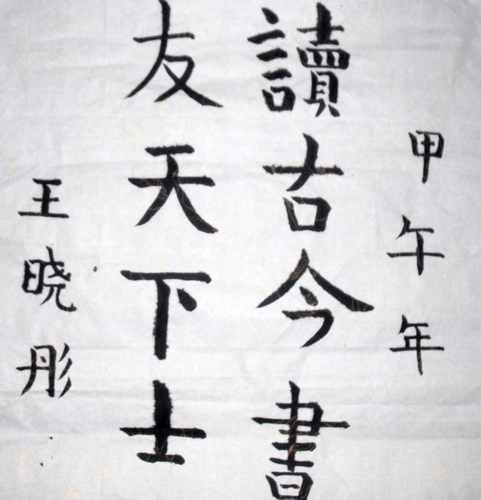 甲午年
讀古今書
友天下士
王晓彤